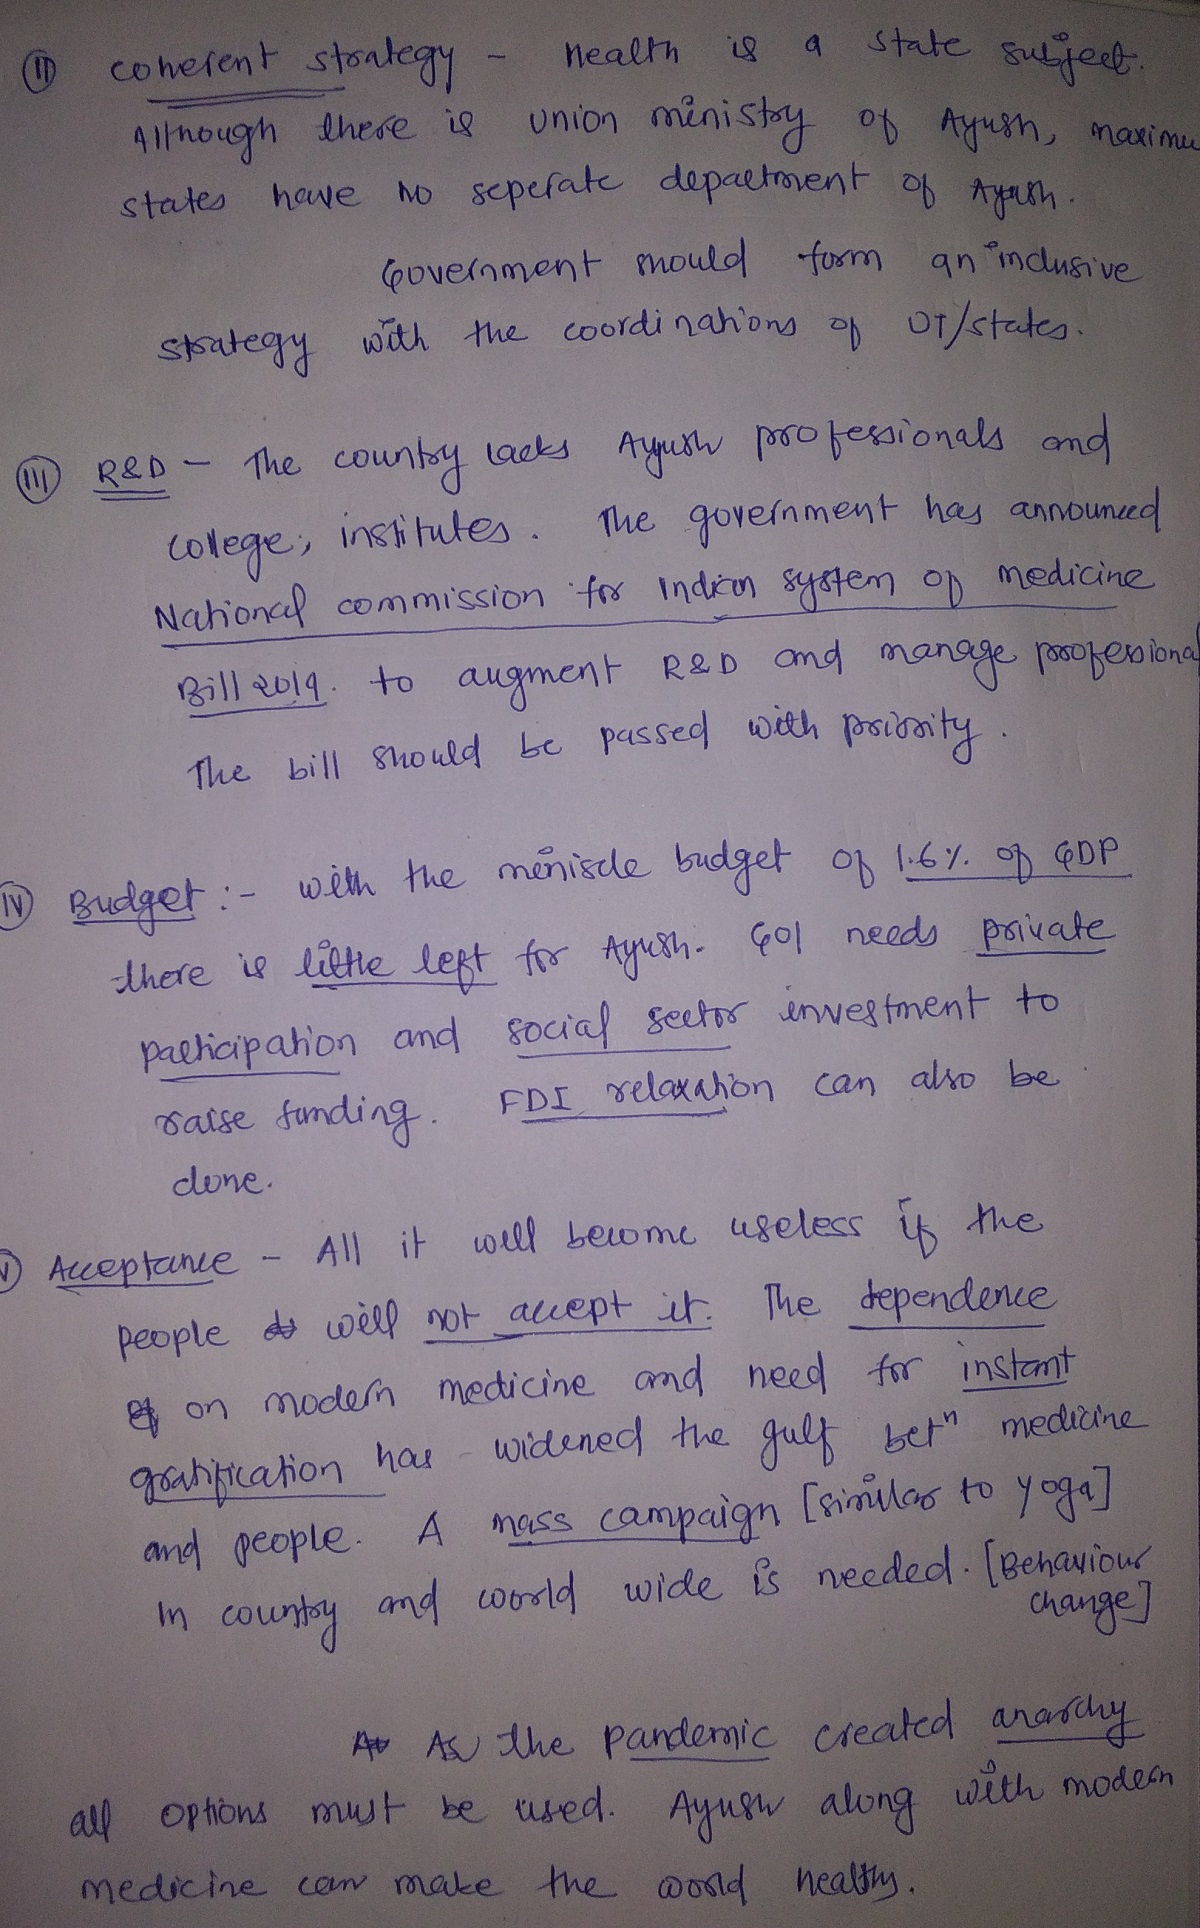 (II) coherent strategy - Health is a state subject.
Although there is union ministry of Ayush, maximu
states have no seperate department of Ayush.
Government should form an inclusive
strategy with the coordinations of UT/states.
(III) R&D - The country lacks Ayush professionals and
college, institutes. The government has announced
National commission for Indian system of medicine
Bill 2019. to augment R&D and manage professiona
The bill should be passed with priority.
(IV) Budget :- with the meniscle budget of 1.6% of GDP
there is little left for Ayush. GOI needs private
participation and social sector investment to
raise funding. FDI relaxation can also be
done.
V) Acceptance - All it will become useless if the
people will not accept it. The dependence
on modern medicine and need for instant
gratification has widened the gulf betn medicine
and people. A mass campaign [similar to yoga]
in country and world wide is needed. [Behaviour
change]
As the pandemic created anarchy
all options must be used. Ayush along with modern
medicine can make the world healthy.